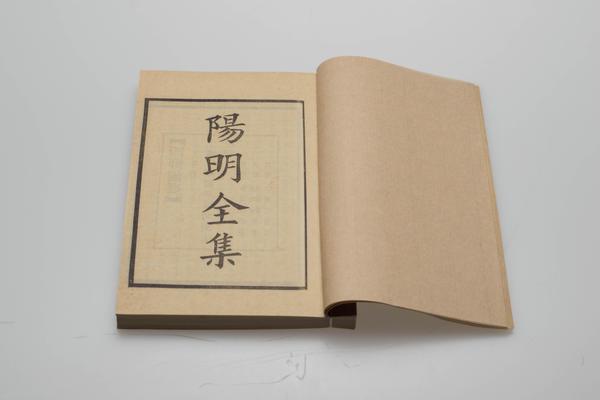 陽明全集